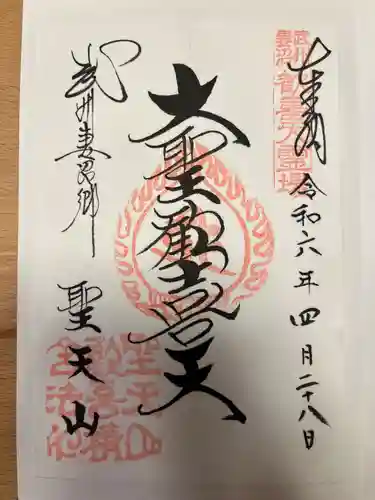 奉拝
令和六年四月二十八日
大聖歓喜天
武州妻沼郷
聖天山